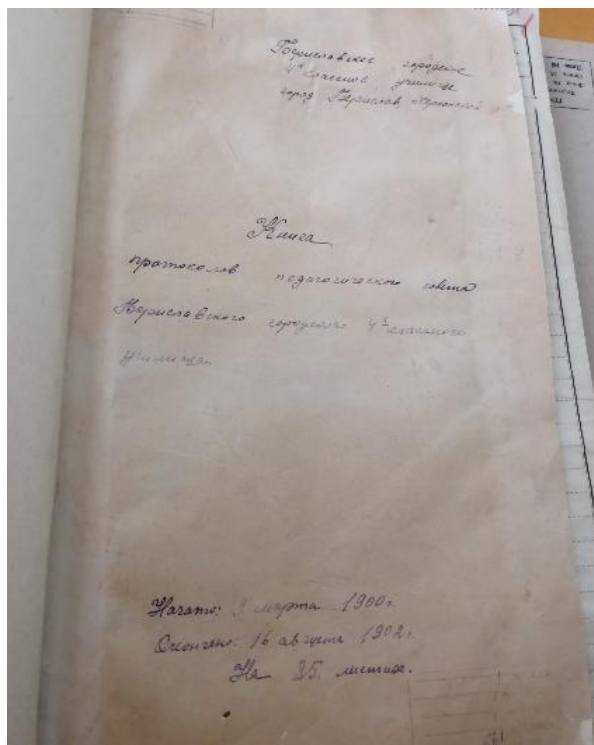 Бериславское городское
4х классное училище
город Берислав Херсонской
Книга
протоколов педагогического совета
Бериславского городского 4х классного
училища.
Начато: 9 марта 1900г.
Окончено: 16 августа 1902г.
На 85 листах.